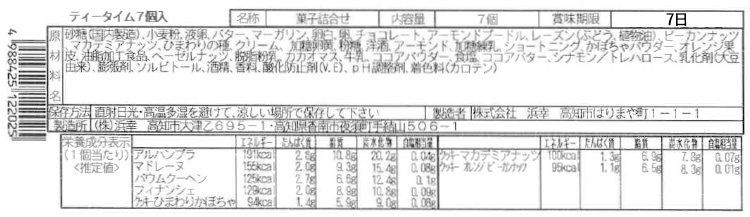 ティータイム7個入
名称 菓子詰合せ 内容量 7個 賞味期限 7日
原材料名 砂糖(国内製造)、小麦粉、液卵、バター、マーガリン、卵白、卵、チョコレート、アーモンドプードル、レーズン(ぶどう、植物油)、ピーカンナッツ
マカデミアナッツ、ひまわりの種、クリーム、加糖卵黄、粉糖、洋酒、アーモンド、加糖練乳、ショートニング、かぼちゃパウダー、オレンジ果
皮、油脂加工食品、ヘーゼルナッツ、脱脂粉乳、カカオマス、牛乳、ココアパウダー、食塩、ココアバター、シナモン/トレハロース、乳化剤(大豆
由来)、膨張剤、ソルビトール、酒精、香料、酸化防止剤(V.E)、pH調整剤、着色料(カロテン)
保存方法 直射日光・高温多湿を避けて、涼しい場所で保存して下さい 製造者 株式会社 浜幸 高知市はりまや町1-1-1
製造所 (株)浜幸 高知市大津乙695-1・高知県香南市夜須町手結山506-1
栄養成分表示 エネルギー たんぱく質 脂質 炭水化物 食塩相当量 エネルギー たんぱく質 脂質 炭水化物 食塩相当量
(1個当たり) アルハンブラ 191kcal 2.8g 10.8g 20.2g 0.04g クッキーマカデミアナッツ 100kcal 1.3g 6.9g 7.8g 0.07g
<推定値> マドレーヌ 155kcal 2.0g 9.3g 15.4g 0.08g クッキーオレンジピールナッツ 95kcal 1.1g 6.5g 8.3g 0.01g
バウムクーヘン 125kcal 2.7g 6.6g 12.4g 0.1g
フィナンシェ 129kcal 2.0g 8.9g 10.8g 0.09g
クッキーひまわりかぼちゃ 94kcal 1.4g 5.9g 9.0g 0.08g
4988425122025